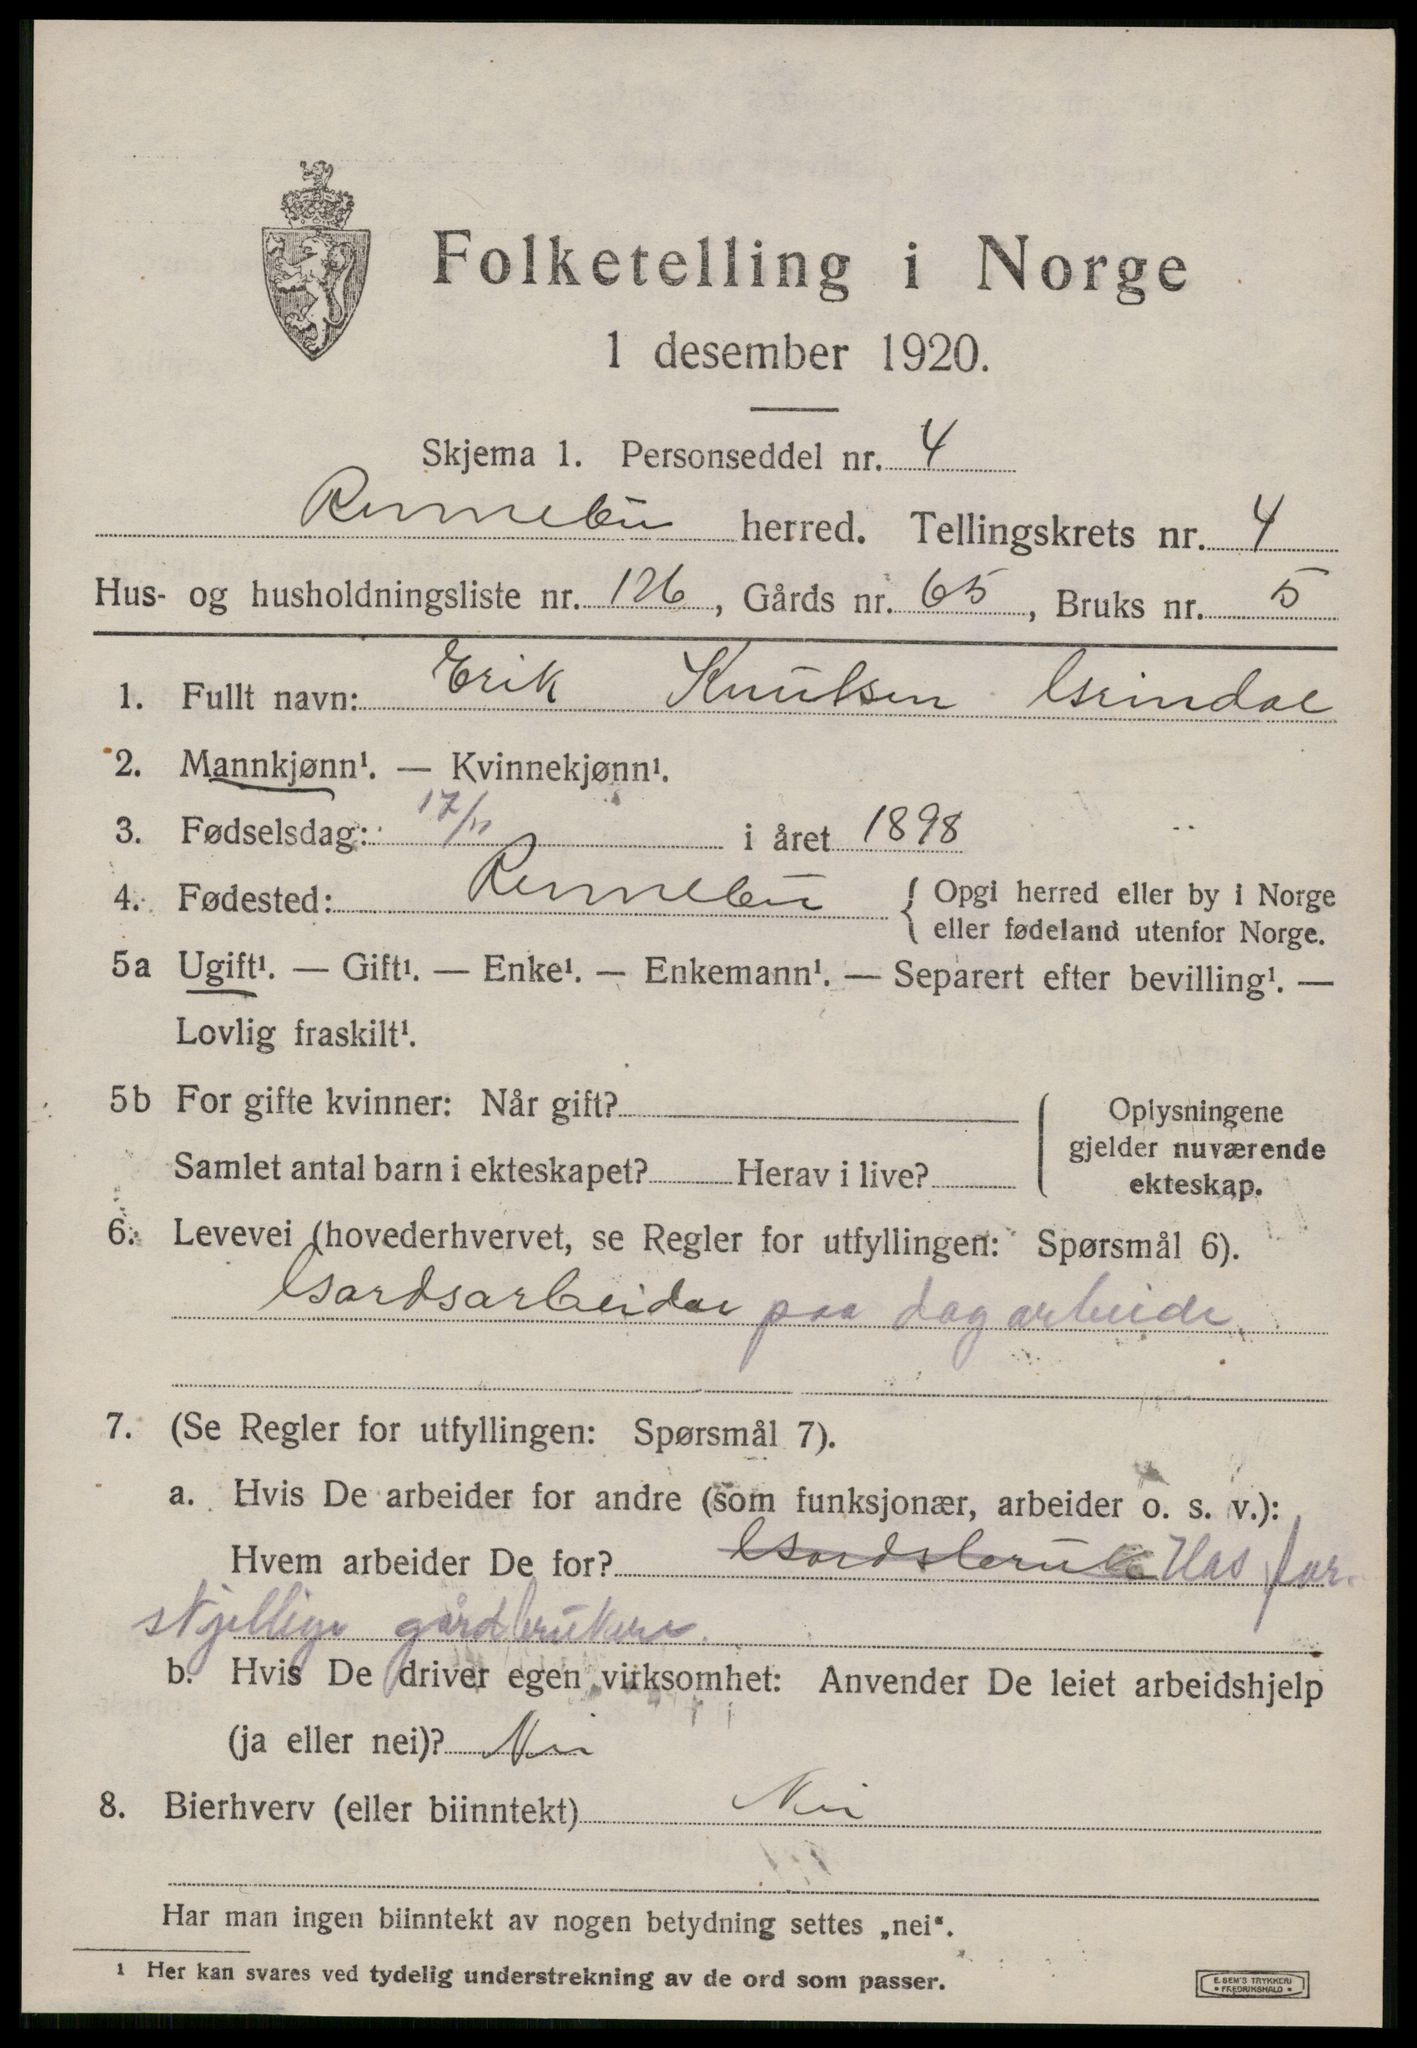 Folketelling i Norge
1 desember 1920.
Skjema 1. Personseddel nr. 4
Rennebu herred. Tellingskrets nr. 4
Hus- og husholdningsliste nr. 126, Gårds nr. 65, Bruks nr. 5
1. Fullt navn: Erik Knutsen Grindal
2. Mannkjønn¹. — Kvinnekjønn¹.
3. Fødselsdag: 17/11 i året 1898
4. Fødested: Rennebu { Opgi herred eller by i Norge
eller fødeland utenfor Norge.
5a Ugift¹. — Gift¹. — Enke¹. — Enkemann¹. — Separert efter bevilling¹. —
Lovlig fraskilt¹.
5b For gifte kvinner: Når gift?
Samlet antal barn i ekteskapet? Herav i live?
Oplysningene
gjelder nuværende
ekteskap.
6. Levevei (hovederhvervet, se Regler for utfyllingen: Spørsmål 6).
Gardsarbeider paa dagarbeide
7. (Se Regler for utfyllingen: Spørsmål 7).
a. Hvis De arbeider for andre (som funksjonær, arbeider o. s. v.):
Hvem arbeider De for? Gardsbruk Has for-
skjellige gårdbrukere.
b. Hvis De driver egen virksomhet: Anvender De leiet arbeidshjelp
(ja eller nei)? Nei
8. Bierhverv (eller biinntekt) Nei
Har man ingen biinntekt av nogen betydning settes „nei“.
¹ Her kan svares ved tydelig understrekning av de ord som passer.
E. SEM'S TRYKKERI
• FREDRIKSHALD •